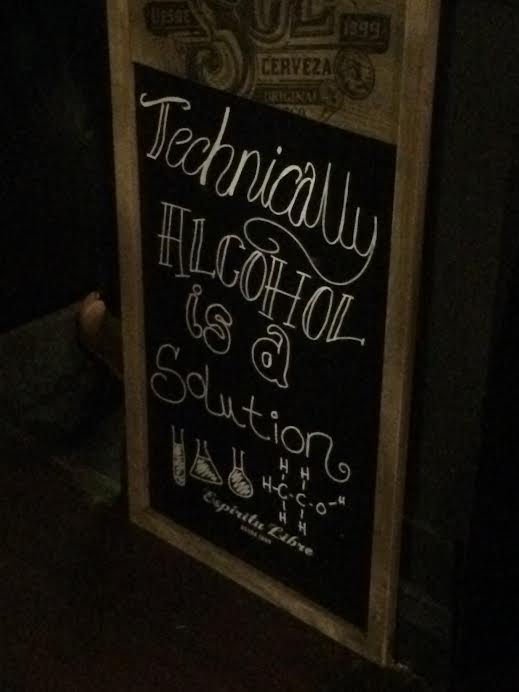 DESDE SOL 1899
CERVEZA
ORIGINAL
Technically
ALCOHOL
is a
Solution
H H
H-C-C-O-H
H H
Espíritu Libre
DESDE 1899